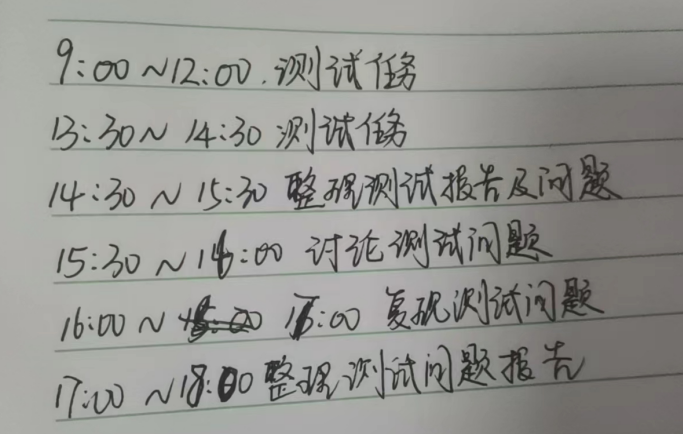 9:00~12:00.测试任务
13:30~14:30 测试任务
14:30~15:30 整理测试报告及问题
15:30~16:00 讨论测试问题
16:00~ :00 复现测试问题
17:00~18:00 整理测试问题报告